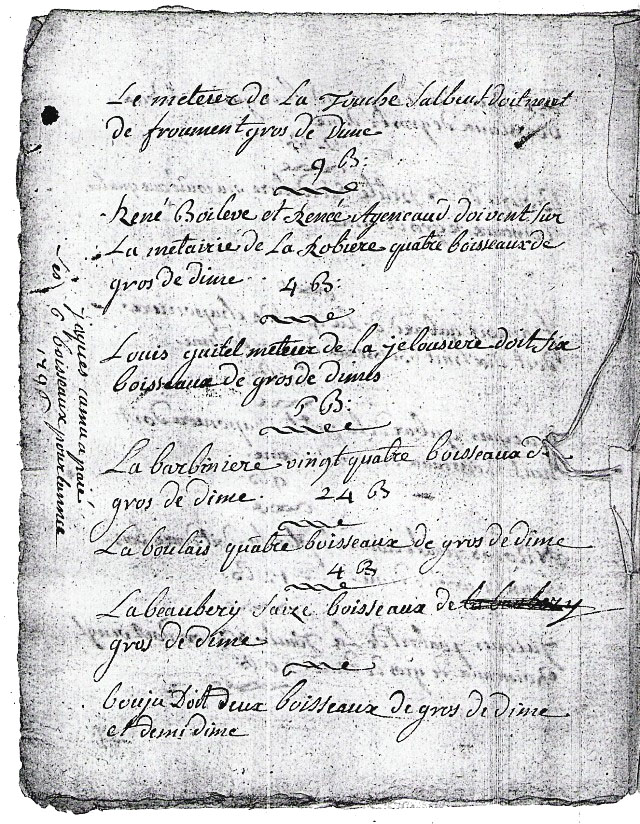 Le meteier de La Touche Salbeuf doit neuf
de froument gros de dime
9 B:
René Boileve et Renée Ageneaud doivent sur
La metairie de La Robiere quatre boisseaux de
gros de dime 4 B:
Louis guitel meteier de la jelousiere doit six
boisseaux de gros de dimes
6 B:
La barbiniere vingt quatre boisseaux de
gros de dime 24 B
La boulais quatre boisseaux de gros de dime
4 B
La beaubery saize boisseaux de
gros de dime
bouju Doit deux boisseaux de gros de dime
et demi dime
jaques camu a paié
Les 6 boisseaux pour lannee